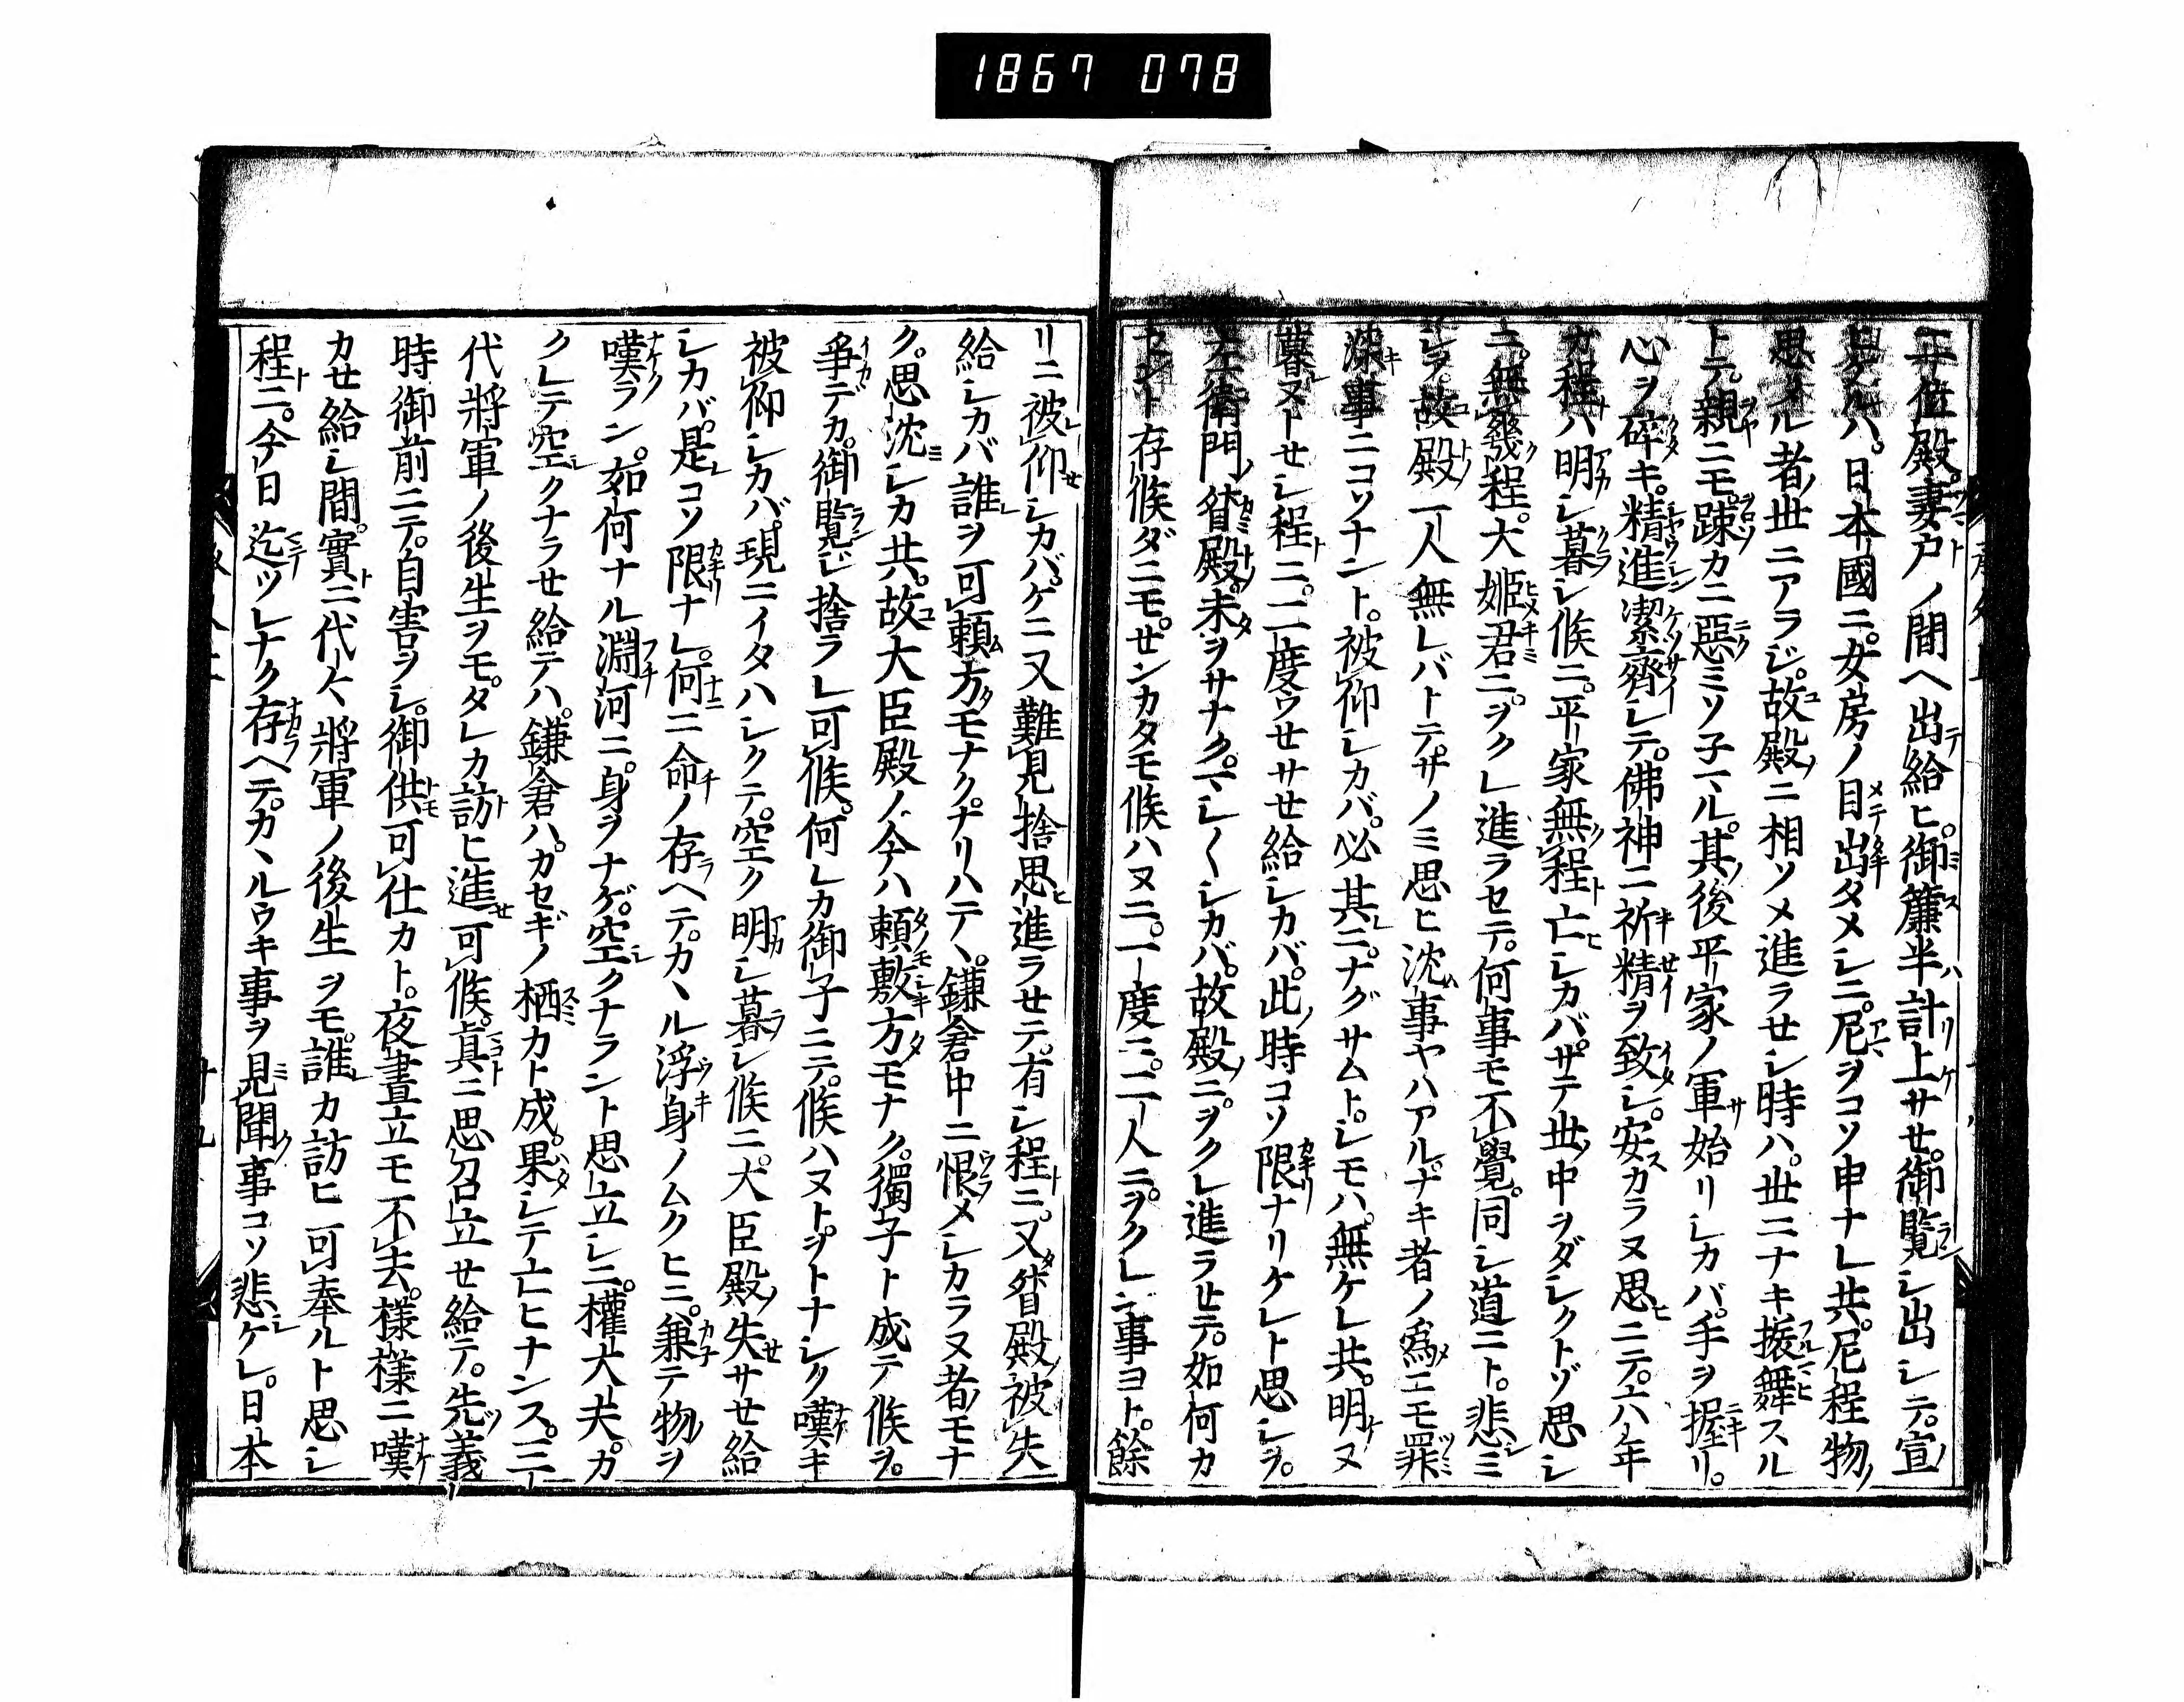 1867 078
二位殿。妻戸ノ間ヘ出給ヒ。御簾半計上サセ。御覧シ出シテ。宣
ケルハ。日本國ニ。女房ノ目出タメシニ。尼ヲコソ申ナレ共。尼程物
思タル者世ニアラジ。故殿ニ相ソメ進ラセシ時ハ。世ニナキ振舞スル
トテ。親ニモ踈カニ惡ミソ子マル。其後平家ノ軍始リシカバ。手ヲ握リ。
心ヲ碎キ。精進潔齋シテ。佛神ニ祈精ヲ致シ。安カラヌ思ニテ。六年
カ程ハ明シ暮シ候ニ。平家無程亡シカバ。サテ世中ヲダシクトゾ思シ
ニ。無幾程。大姫君ニ。ヲクレ進ラセテ。何事モ不覺。同シ道ニト。悲ミ
シヲ。故殿一人無レバトテ。サノミ思ヒ沈事ヤハアル。ナキ者ノ爲ニモ罪
深事ニコソナント。被仰シカバ。必其ニ。ナグサムト。シモハ。無ケレ共。明ヌ
暮ヌトセシ程ニ。二度ウセサセ給シカバ。此時コソ限ナリケレト思シヲ。
左衛門督殿。未ヲサナク。マシ〱シカバ。故殿ニ。ヲクレ進ラセテ。如何カ
セント存候ダニモ。せンカタモ候ハヌニ。一度ニ。二人ニ。ヲクレン事ヨト。餘
リニ被仰シカバ。ケニ又難見捨思進ラセテ。有シ程ニ。又督殿被失
給シカバ誰ヲ可頼方モナクナリハテヽ。鎌倉中ニ恨メシカラヌ者モナ
ク。思沈シカ共。故大臣殿ノ今ハ頼敷方モナク。獨子ト成テ候ヲ。
爭デカ。御覧ジ捨ラレ可候。何レカ御子ニテ。候ハヌト。ヲトナシク嘆キ
被仰シカバ。現ニイタハシクテ。空ク明シ暮シ候ニ。大臣殿失サセ給
シカバ。是コソ限ナレ。何ニ命ノ存ヘテ。カヽル浮身ノムクヒニ。兼テ物ヲ
嘆ラン。如何ナル淵河ニ。身ヲナゲ。空クナラント思立シニ。權大夫。カ
クレテ空クナラセ給テハ。鎌倉ハ。カセギノ栖カト成。果シテ亡ヒナンス。三
代將軍ノ後生ヲモ。タレカ訪ヒ進可候。眞ニ思召立セ給テ。先義
時御前ニテ。自害ヲシ。御供可仕カト。夜晝立モ不去。樣樣ニ嘆
カセ給シ間。實ニ代々將軍ノ後生ヲモ。誰カ訪ヒ可奉ルト思シ
程ニ。今日迄ツレナク存ヘテ。カヽルウキ事ヲ見聞事コソ悲ケレ。日本